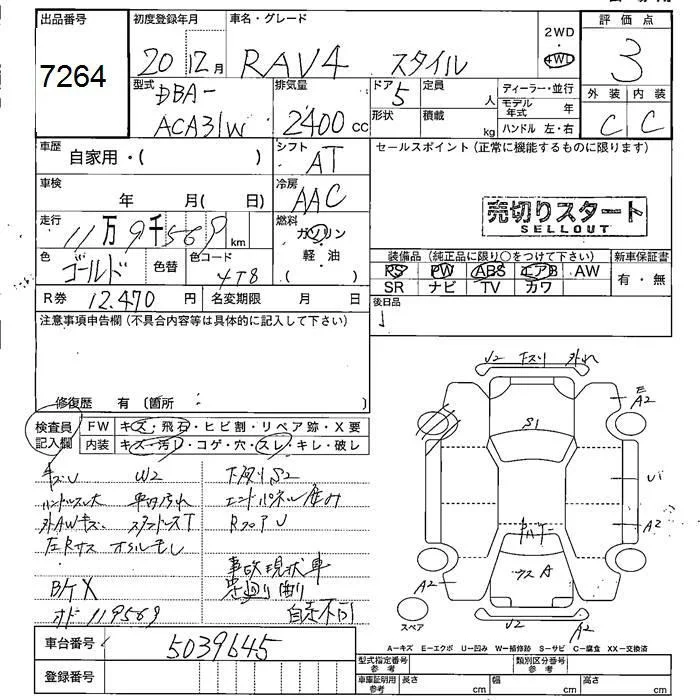 出品番号 初度登録年月 車名・グレード 2WD 評価点
7264 20 12月 RAV4 スタイル ・ 4WD 3
型式 排気量 ドア 定員 ディーラー・並行 外装 内装
DBA- 5 人 モデル年式 年
ACA31W 2400cc 形状 積載 kg ハンドル 左・右 C C
車歴 自家用・( ) シフト AT セールスポイント(正常に機能するものに限ります)
車検 年 月( 日) 冷房 AAC
売切りスタート
SELLOUT
走行 11万9千569km 燃料 ガソリン・軽・油( )
色 ゴールド 色替 色コード 4T8
装備品(純正品に限り○をつけて下さい) 新車保証書
PS PW ABS エアB AW 有・無
SR ナビ TV カワ
R券 12,470円 名変期限 月 日 後日品
注意事項申告欄(不具合内容等は具体的に記入して下さい)
修復歴 有 〔箇所 〕
検査員記入欄 FW キズ・飛石・ヒビ割・リペア跡・X要
内装 キズ・汚レ・コゲ・穴・スレ・キレ・破レ
キズU W2 下廻りS2
ハンドルスレ大 車内汚れ エンドパネル歪み
外AWキズ RフロアU
事故現状車
B/ケX 足廻り
オド119569 自走不可
U2 下スリ 外れ
E
A2
S1
U1
A2
A2
ウスA
U2
A2
スペア
A-キズ E-エクボ U-凹み W-補修跡 S-サビ C-腐食 XX-交換済
車台番号 5039645
型式指定番号 参考 類別区分番号 参考
登録番号
車庫証明用 参考 長さ cm 幅 cm 高さ cm